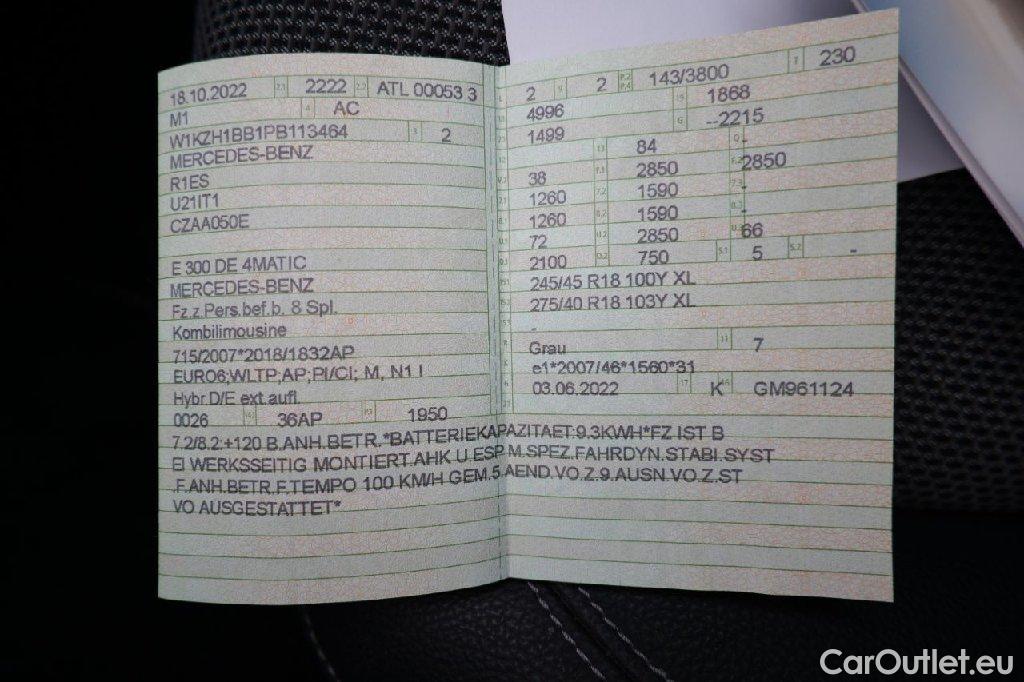 18.10.2022 2.1 2222 2.2 ATL 00053 3
M1 4 AC
W1KZH1BB1PB113464 3 2
MERCEDES-BENZ
R1ES
U21IT1
CZAA050E
E 300 DE 4MATIC
MERCEDES-BENZ
Fz.z.Pers.bef.b. 8 Spl.
Kombilimousine
715/2007*2018/1832AP
EURO6;WLTP;AP;PI/CI; M, N1 I
Hybr.D/E ext.aufl.
0026 36AP P.3 1950
2 9 2 P.2 P.4 143/3800 T 230
4996 1868
1499 G --2215
84 -
38 2850 2850
1260 1590 -
1260 1590 -
72 2850 66
2100 750 S.1 5 S.2 -
245/45 R18 100Y XL
275/40 R18 103Y XL
-
Grau 11 7
e1*2007/46*1560*31
03.06.2022 17 K 16 GM961124
7.2/8.2:+120 B.ANH.BETR.*BATTERIEKAPAZITAET:9.3KWH*FZ IST B
EI WERKSSEITIG MONTIERT.AHK U.ESP M.SPEZ.FAHRDYN.STABI.SYST
.F.ANH.BETR.F.TEMPO 100 KM/H GEM.5.AEND.VO.Z.9.AUSN.VO.Z.ST
VO AUSGESTATTET*
CarOutlet.eu